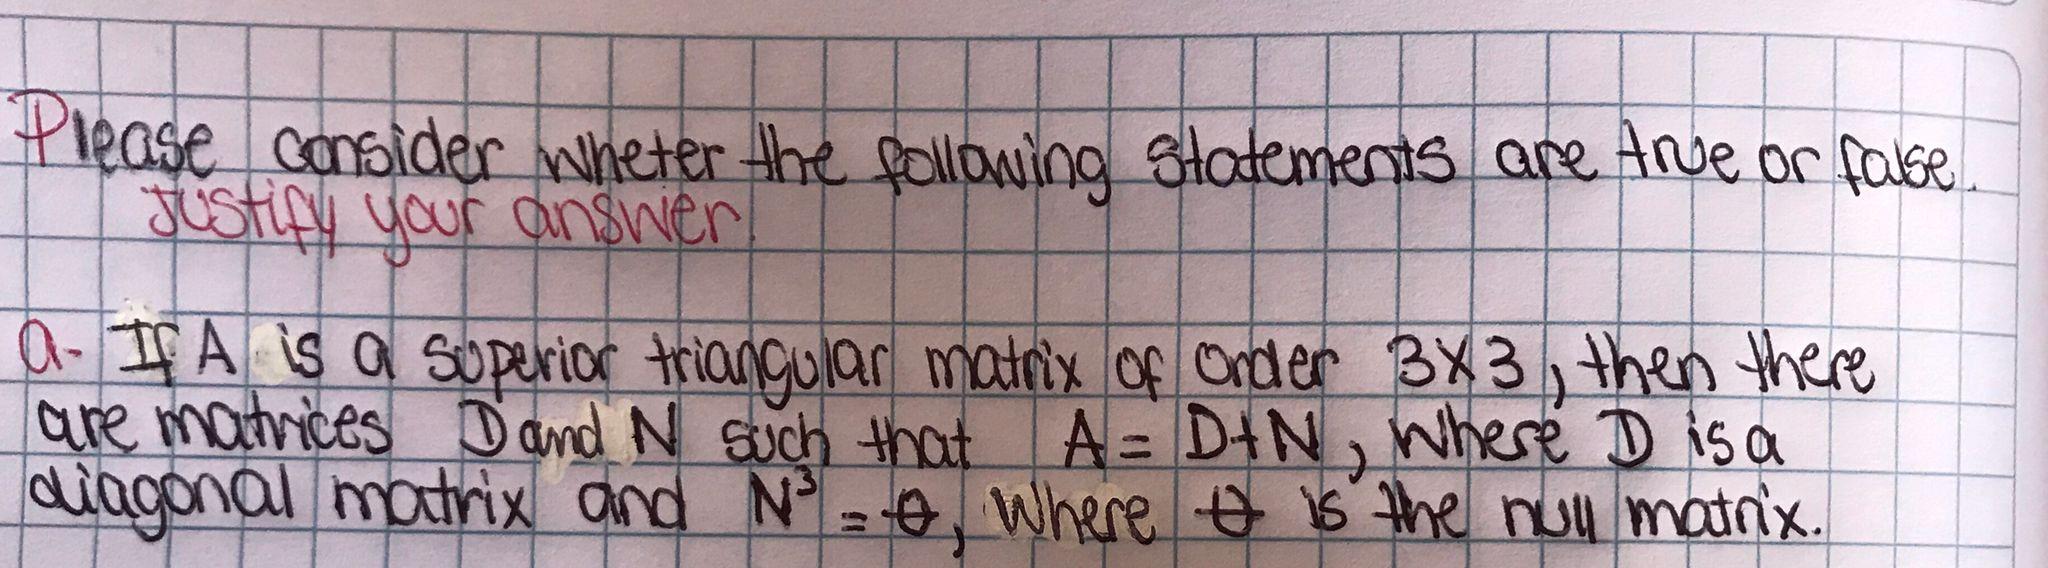 Please consider wheter the following statements are true or false.
Justify your answer.
a- If A is a superior triangular matrix of order 3x3, then there
are matrices D and N such that A = D+N, where D is a
diagonal matrix and N³ = θ, where θ is the null matrix.